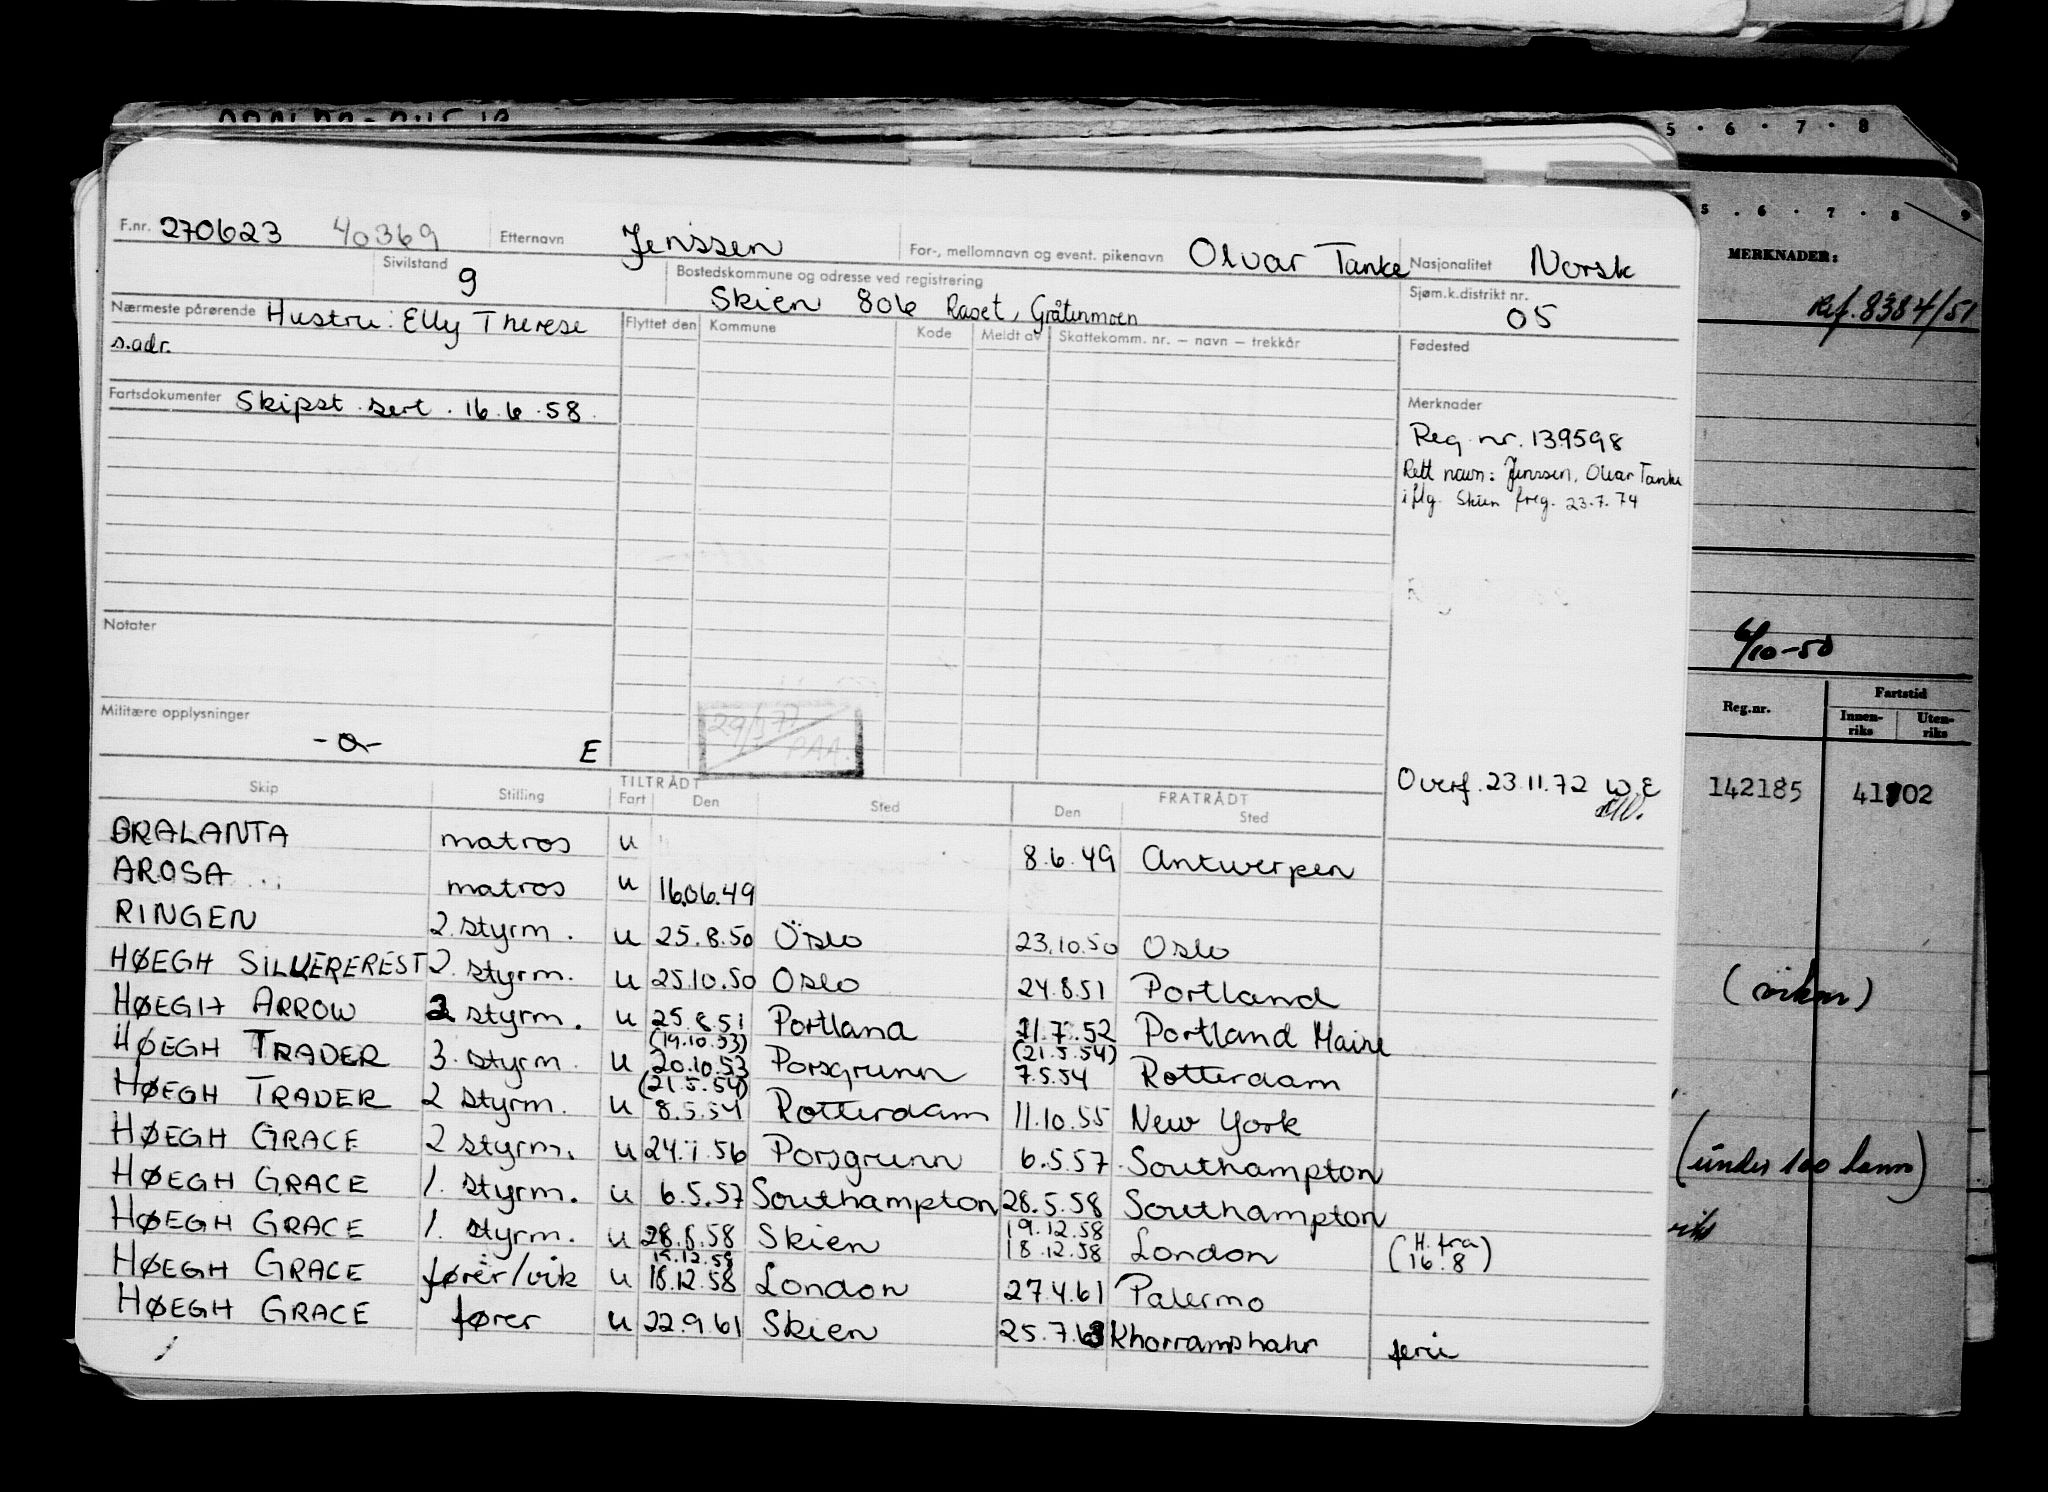 F.nr. 270623 40369 Etternavn Jenssen For-, mellomnavn og event. pikenavn Olvar Tanke Nasjonalitet Norsk
Sivilstand 9 Bostedskommune og adresse ved registrering Skien 806 Raset, Gråtenmoen Sjøm.k.distrikt nr. 05
Nærmeste pårørende Hustru: Elly Therese
s.adr.
Flyttet den Kommune Kode Meldt av Skattekomm. nr. – navn – trekkår
Fødested
Fartsdokumenter Skipst. sert. 16.6.58.
Merknader
Reg. nr. 139598
Rett navn: Jenssen, Olvar Tanke
iflg. Skien freg. 23.7.74
Notater
Militære opplysninger
-o- E
PAA.
Overf. 23.11.72 W.E
Skip Stilling TILTRÅDT Fart Den Sted FRATRÅDT Den Sted
BRALANTA matros u 8.6.49 Antwerpen
AROSA matros u 16.06.49
RINGEN 2. styrm. u 25.8.50 Oslo 23.10.50 Oslo
HØEGH SILVERCREST 2. styrm. u 25.10.50 Oslo 24.8.51 Portland
HØEGH ARROW 2 styrm. u 25.8.51 Portland 21.7.52 Portland Maine
(19.10.53) (21.5.54)
HØEGH TRADER 3. styrm. u 20.10.53 Porsgrunn 7.5.54 Rotterdam
(21.5.54)
HØEGH TRADER 2 styrm. u 8.5.54 Rotterdam 11.10.55 New York
HØEGH GRACE 2 styrm. u 24.1.56 Porsgrunn 6.5.57. Southampton
HØEGH GRACE 1. styrm. u 6.5.57 Southampton 28.5.58 Southampton
19.12.58
HØEGH GRACE 1. styrm. u 28.8.58 Skien 18.12.58 London (H. fra 16.8)
19.12.58
HØEGH GRACE fører/vik u 18.12.58 London 27.4.61 Palermo
HØEGH GRACE fører u 22.9.61 Skien 25.7.63 Khorramshahr ferie
5 · 6 · 7 · 8
5 · 6 · 7 · 8 9
MERKNADER:
Ref. 8384/51
6/10-50
Reg.nr. Fartstid
Innen-riks Uten-riks
142185 41 02
(under 100 )